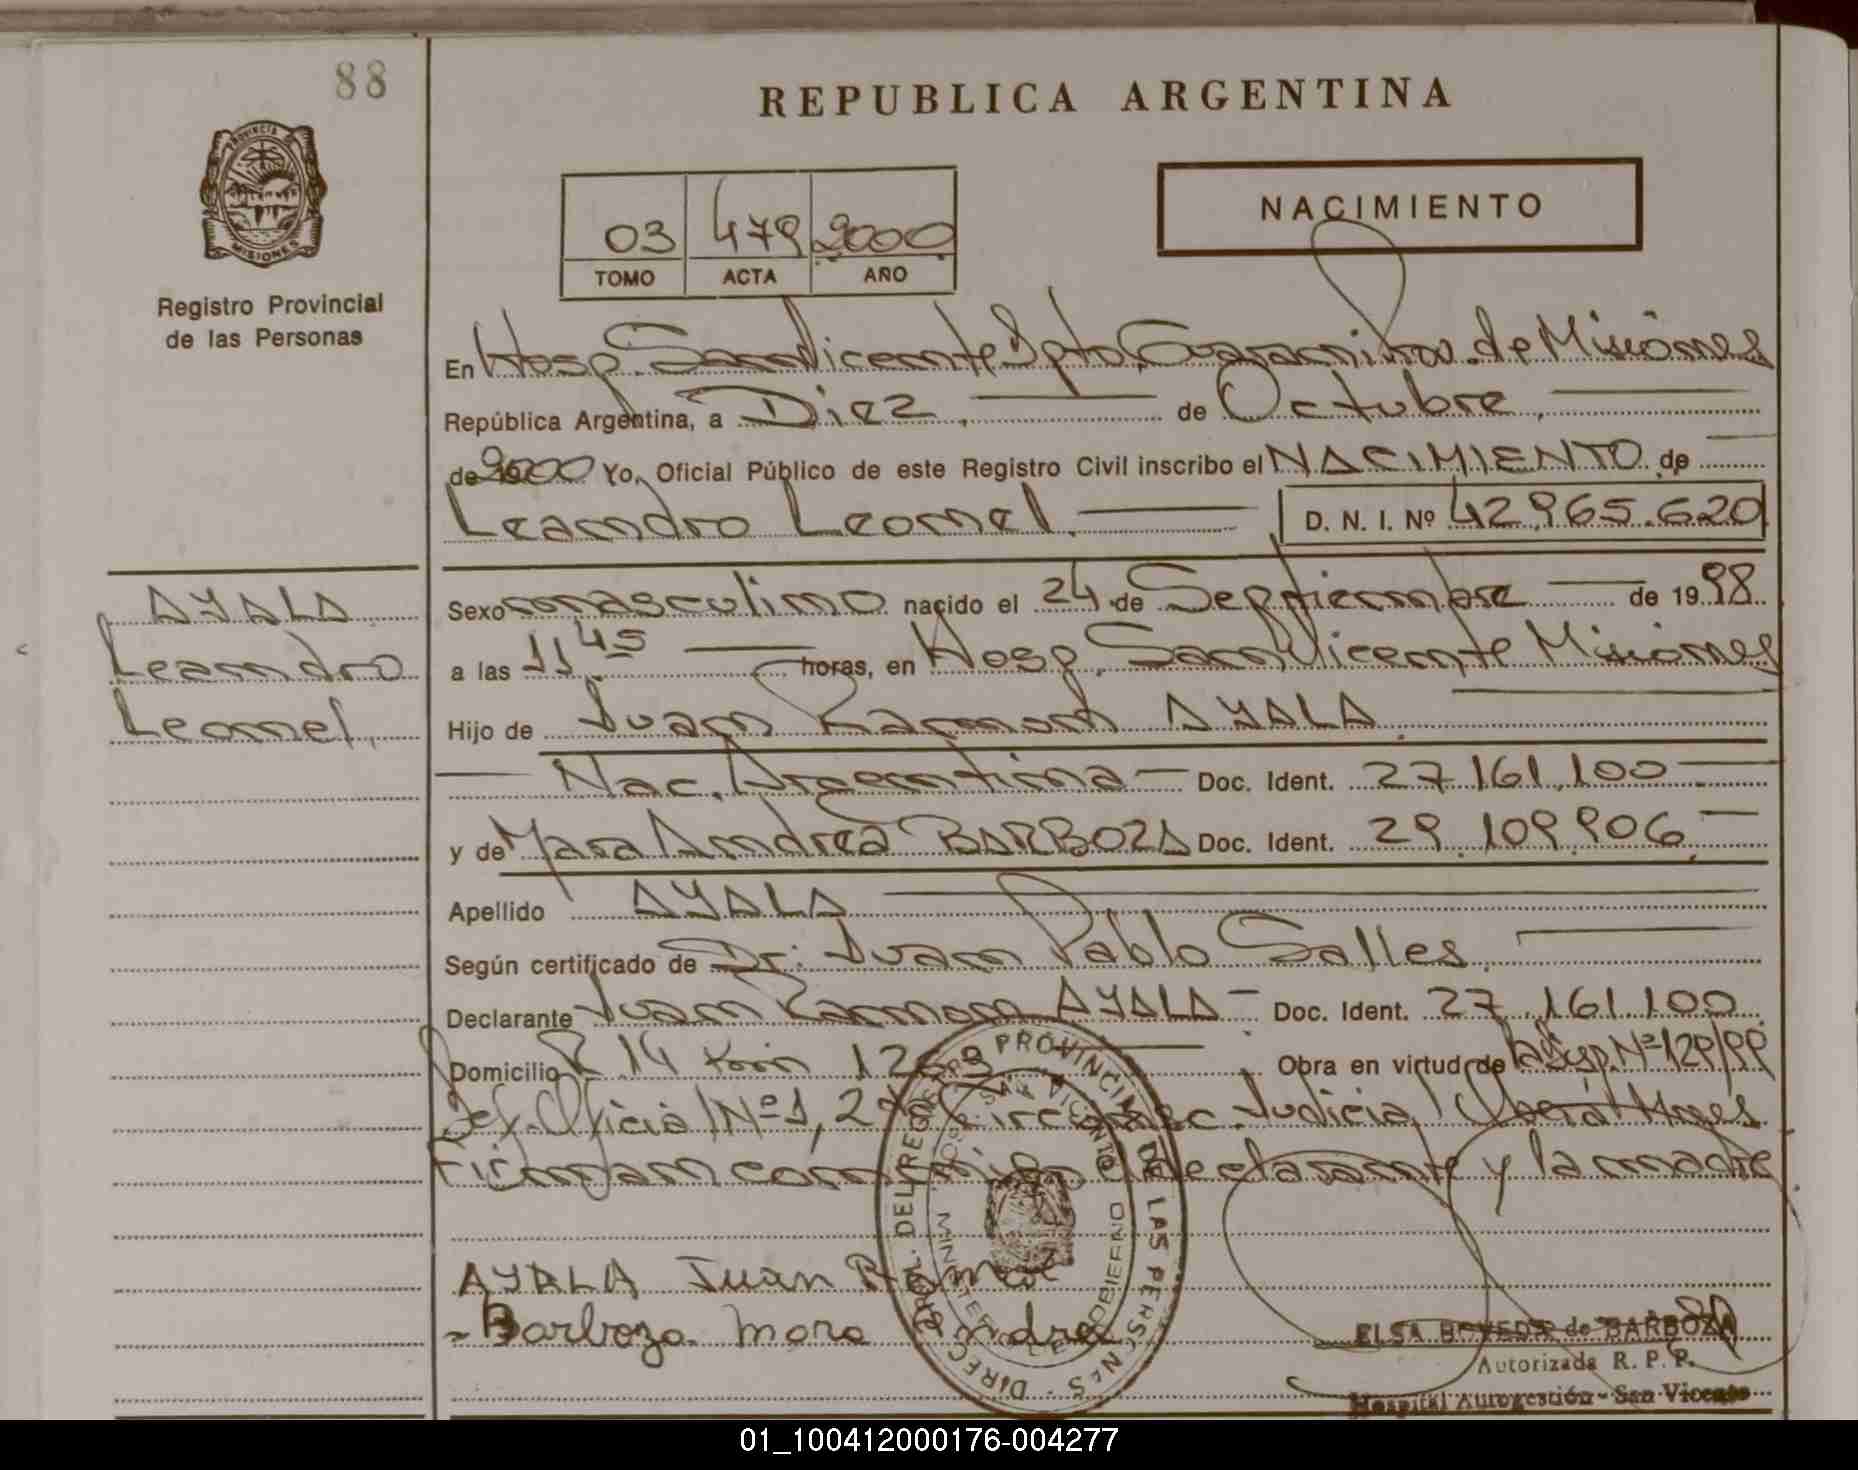 88
REPUBLICA ARGENTINA
PROVINCIA
MISIONES
Registro Provincial
de las Personas
03 479 2000
TOMO ACTA AÑO
NACIMIENTO
En Hosp. San Vicente Dpto. Guaraní Prov. de Misiones
República Argentina, a Diez, de Octubre,
de 2000 Yo, Oficial Público de este Registro Civil inscribo el NACIMIENTO de
Leandro Leonel. D. N. I. Nº 42.965.620
AYALA
Leandro
Leonel.
Sexo masculino nacido el 24 de Septiembre de 1998
a las 11 45 horas, en Hosp. San Vicente Misiones
Hijo de Juan Ramon AYALA.
Nac. Argentina Doc. Ident. 27.161.100
y de Mara Andrea BARBOZA Doc. Ident. 29.109.906.
Apellido AYALA
Según certificado de Dr. Juan Pablo Salles.
Declarante Juan Ramon AYALA Doc. Ident. 27.161.100
Domicilio 14 Obra en virtud de la Disp. Nº 129/99
Def. Oficial Nº 1, 2da Circunsc. Judicial
Firman conmigo declarante y la madre
AYALA Juan Ramon
Barboza Mara Andrea
DIREC. PROL. DEL REGISTRO PROVINCIAL DE LAS PERSONAS
SAN VICENTE
MINISTERIO DE GOBIERNO
ELSA de BARBOZA
Autorizada R. P. P.
Hospital Autogestión - San Vicente
01_100412000176-004277